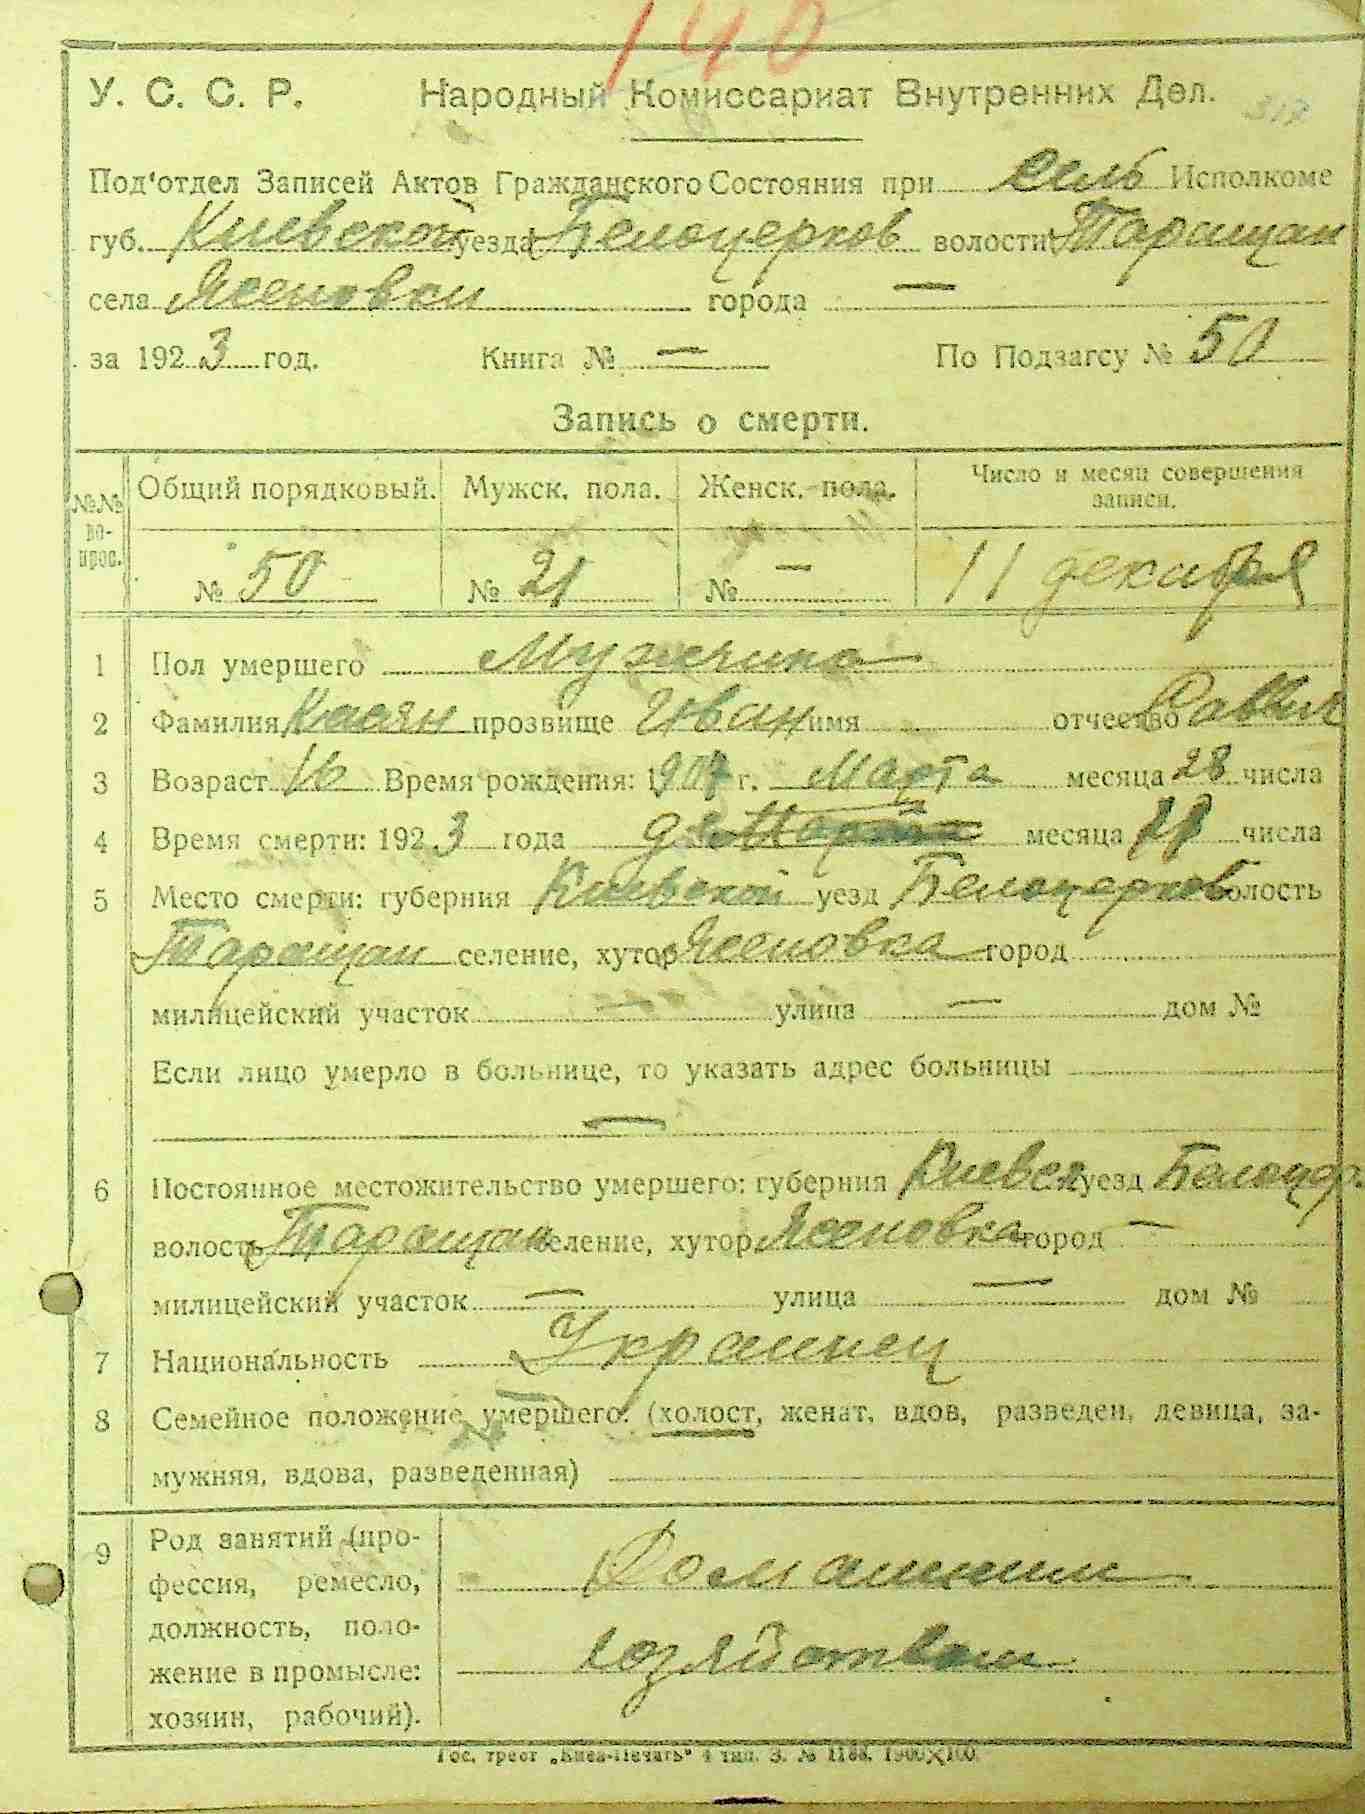 140
У. С. С. Р. Народный Комиссариат Внутренних Дел. 317
Под'отдел Записей Актов Гражданского Состояния при сель Исполкоме
губ. Киевской уезда Белоцерков волости Таращан
села Ясеновки города —
за 1923 год. Книга № — По Подзагсу № 50
Запись о смерти.
№№ вопрос. Общий порядковый. Мужск. пола. Женск. пола. Число и месяц совершения записи.
№ 50 № 21 № — 11 декабря
1 Пол умершего Мужчина
2 Фамилия Касян прозвище Иван имя отчество Саввич
3 Возраст 16 Время рождения: 1907 г. Марта месяца 28 числа
4 Время смерти: 1923 года месяца числа
5 Место смерти: губерния Киевской уезд Белоцерков волость
Таращан селение, хутор Ясеновка город
милицейский участок — улица — дом №
Если лицо умерло в больнице, то указать адрес больницы
—
6 Постоянное местожительство умершего: губерния Киевск уезд Белоцер.
волость Таращан селение, хутор Ясеновка город —
милицейский участок — улица — дом №
7 Национальность Украинец
8 Семейное положение умершего: (холост, женат, вдов, разведен, девица, за-
мужняя, вдова, разведенная)
9 Род занятий (про-
фессия, ремесло, Домашним
должность, поло-
жение в промысле: хозяйством
хозяин, рабочий).
Гос. трест „Киев-Печать" 4 тип. З. № 1188. 1900×100.